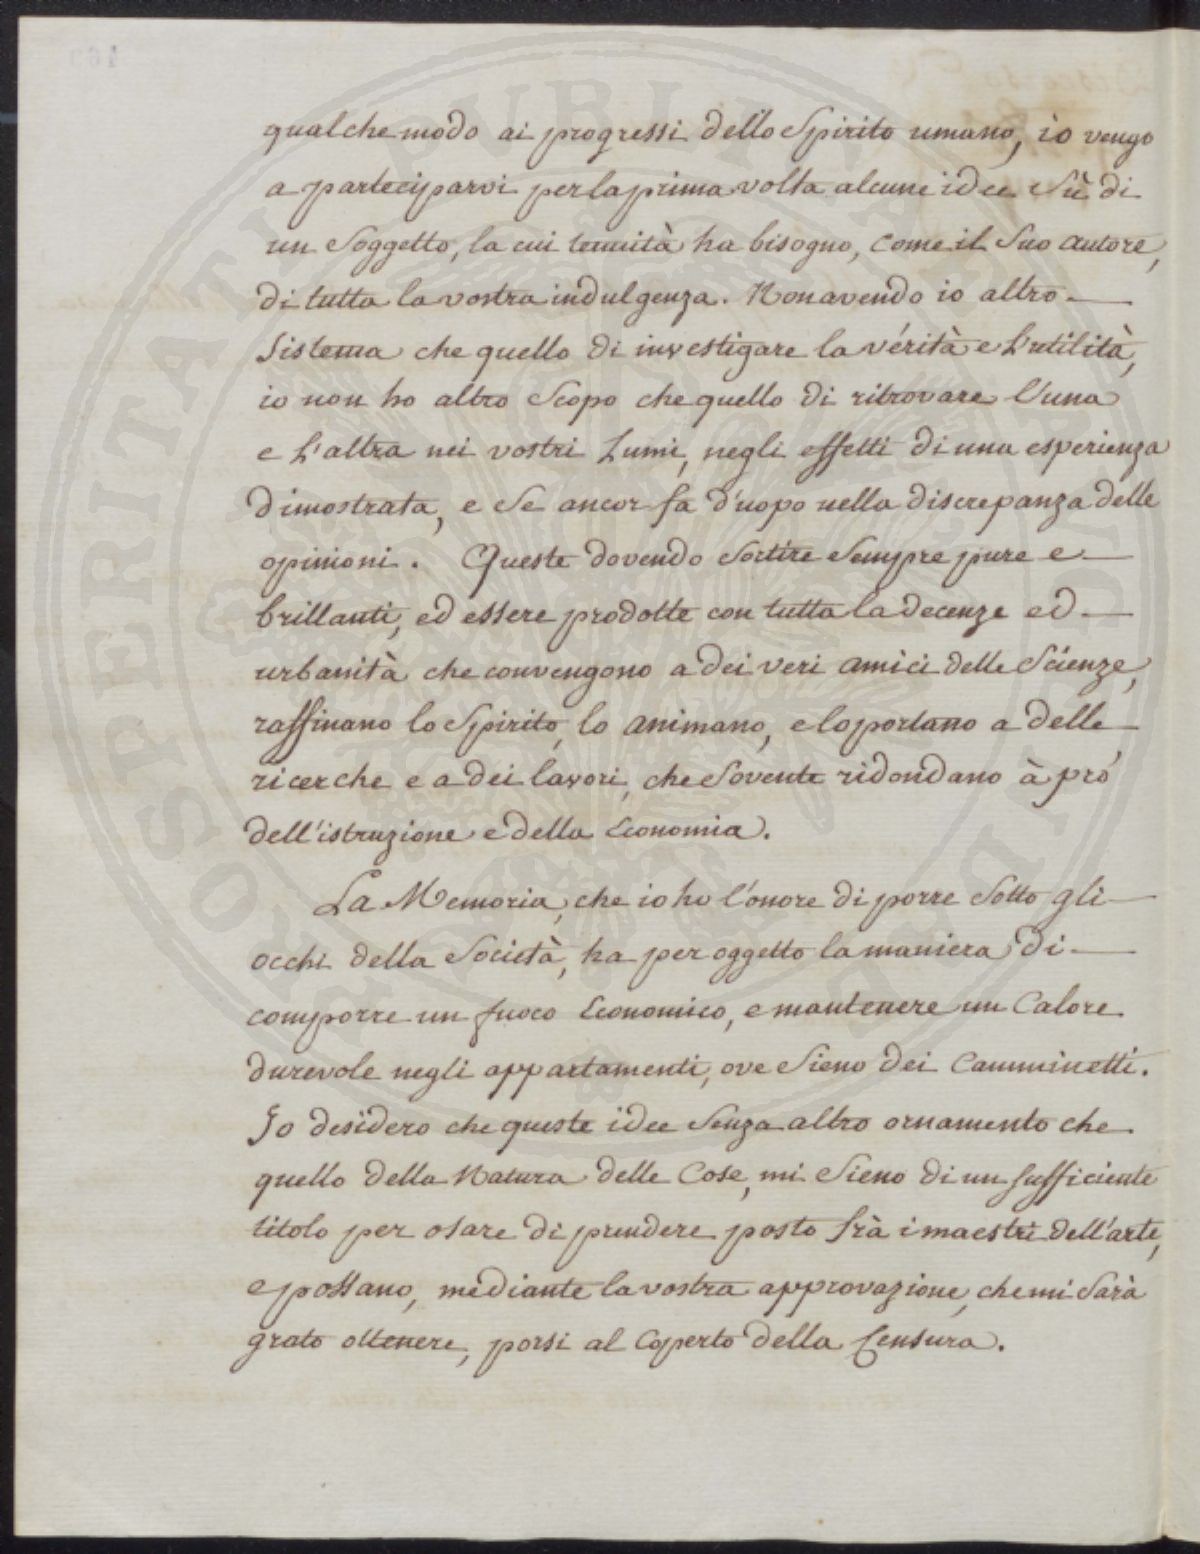 qualche modo ai progressi dello Spirito umano, io vengo
a parteciparvi per la prima volta alcune idee Sù di
un Soggetto, la cui tenuità ha bisogno, come il Suo autore,
di tutta la vostra indulgenza. Non avendo io altro
Sistema che quello di investigare la vérità e L'utilità,
io non ho altro Scopo che quello di ritrovare l'una
e L'altra nei vostri Lumi, negli effetti di una esperienza
dimostrata, e Se ancor fa d'uopo nella discrepanza delle
opinioni. Queste dovendo Sortire Sempre pure e
brillanti, ed essere prodotte con tutta la decenze ed
urbanità che convengono a dei veri amici delle Scienze,
raffinano lo Spirito, lo animano, e lo portano a delle
ricerche e a dei lavori, che Sovente ridondano à pró
dell'istruzione e della Economia.
La Memoria, che io ho l'onore di porre Sotto gli
occhi della Società, ha per oggetto la maniera di
comporre un fuoco Economico, e mantenere un Calore
durevole negli appartamenti, ove Sieno dei Camminetti.
Io desidero che queste idee Senza altro ornamento che
quello della Natura delle Cose, mi Sieno di un Sufficiente
titolo per osare di prendere posto frà i maestri dell'arte,
e possano, mediante la vostra approvazione, che mi Sarà
grato ottenere, porsi al Coperto della Censura.
SOSPERITATI PUBLICAE AUGENDAE